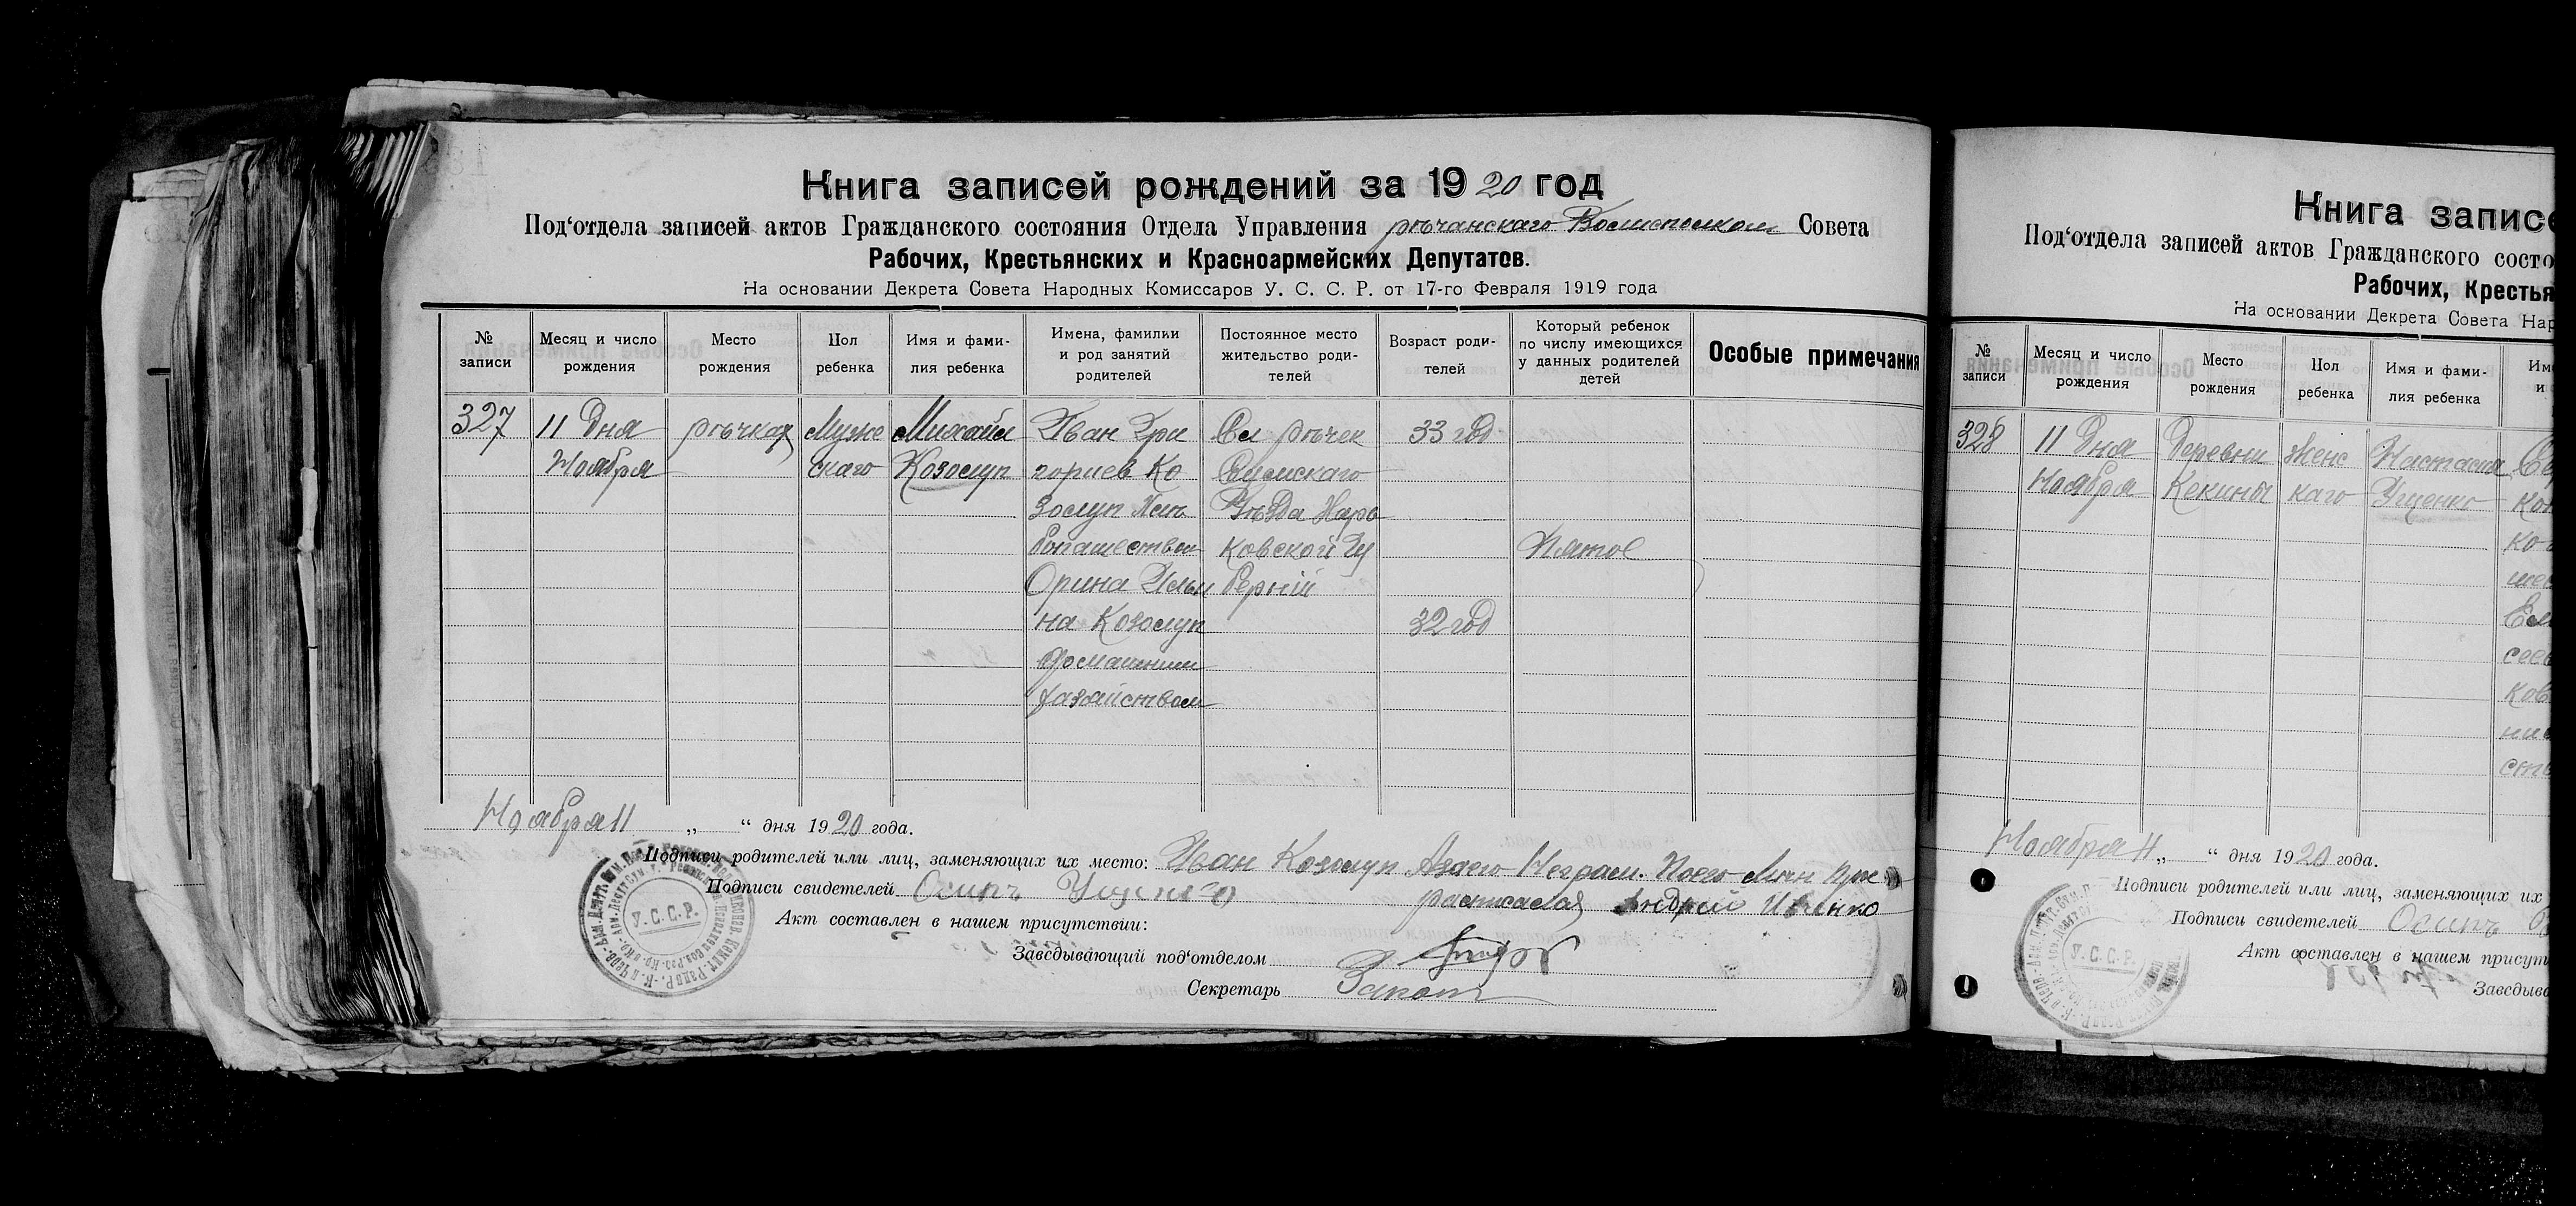 Книга записей рождений за 1920 год
Под‘отдела записей актов Гражданского состояния Отдела Управления рѣчанскаго Совета
Рабочих, Крестьянских и Красноармейских Депутатов.
На основании Декрета Совета Народных Комиссаров У. С. С. Р. от 17-го Февраля 1919 года
№ записи
Месяц и число рождения
Место рождения
Пол ребенка
Имя и фами-
лия ребенка
Имена, фамилии
и род занятий
родителей
Постоянное место
жительство роди-
телей
Возраст роди-
телей
Который ребенок
по числу имеющихся
у данных родителей
детей
Особые примечания
327
11 Дня
Ноября
рѣчках
Муже
скаго
Михаил
Козослуп
Иван Гри
гориев Ко
зослуп
Орина Ильи
на Козослуп
Домашним
хазайством
Сел рѣчек
Сумскаго
Уѣзда Харь
ковской Гу
берній
33 год
32 год
Пятое
Ноября 11 „ “ дня 1920 года.
Подписи родителей или лиц, заменяющих их место: Иван Козослуп Неграм.
Подписи свидетелей Осипъ Ущенко
расписался Андрей
Акт составлен в нашем присутствии:
Заведывающий под‘отделом
Секретарь
У.С.С.Р.
Книга записе
Под‘отдела записей актов Гражданского состо
Рабочих, Крестья
На основании Декрета Совета Нар
№ записи
Месяц и число
рождения
Место
рождения
Пол
ребенка
Имя и фами-
лия ребенка
328
11 Дня
Ноября
Деревни
Кекины
Женс
каго
Настасия
Ущенко
Ноября 11 „ “ дня 1920 года.
Подписи родителей или лиц, заменяющих их
Подписи свидетелей Осипъ
Акт составлен в нашем присут
Заведыв
У.С.С.Р.